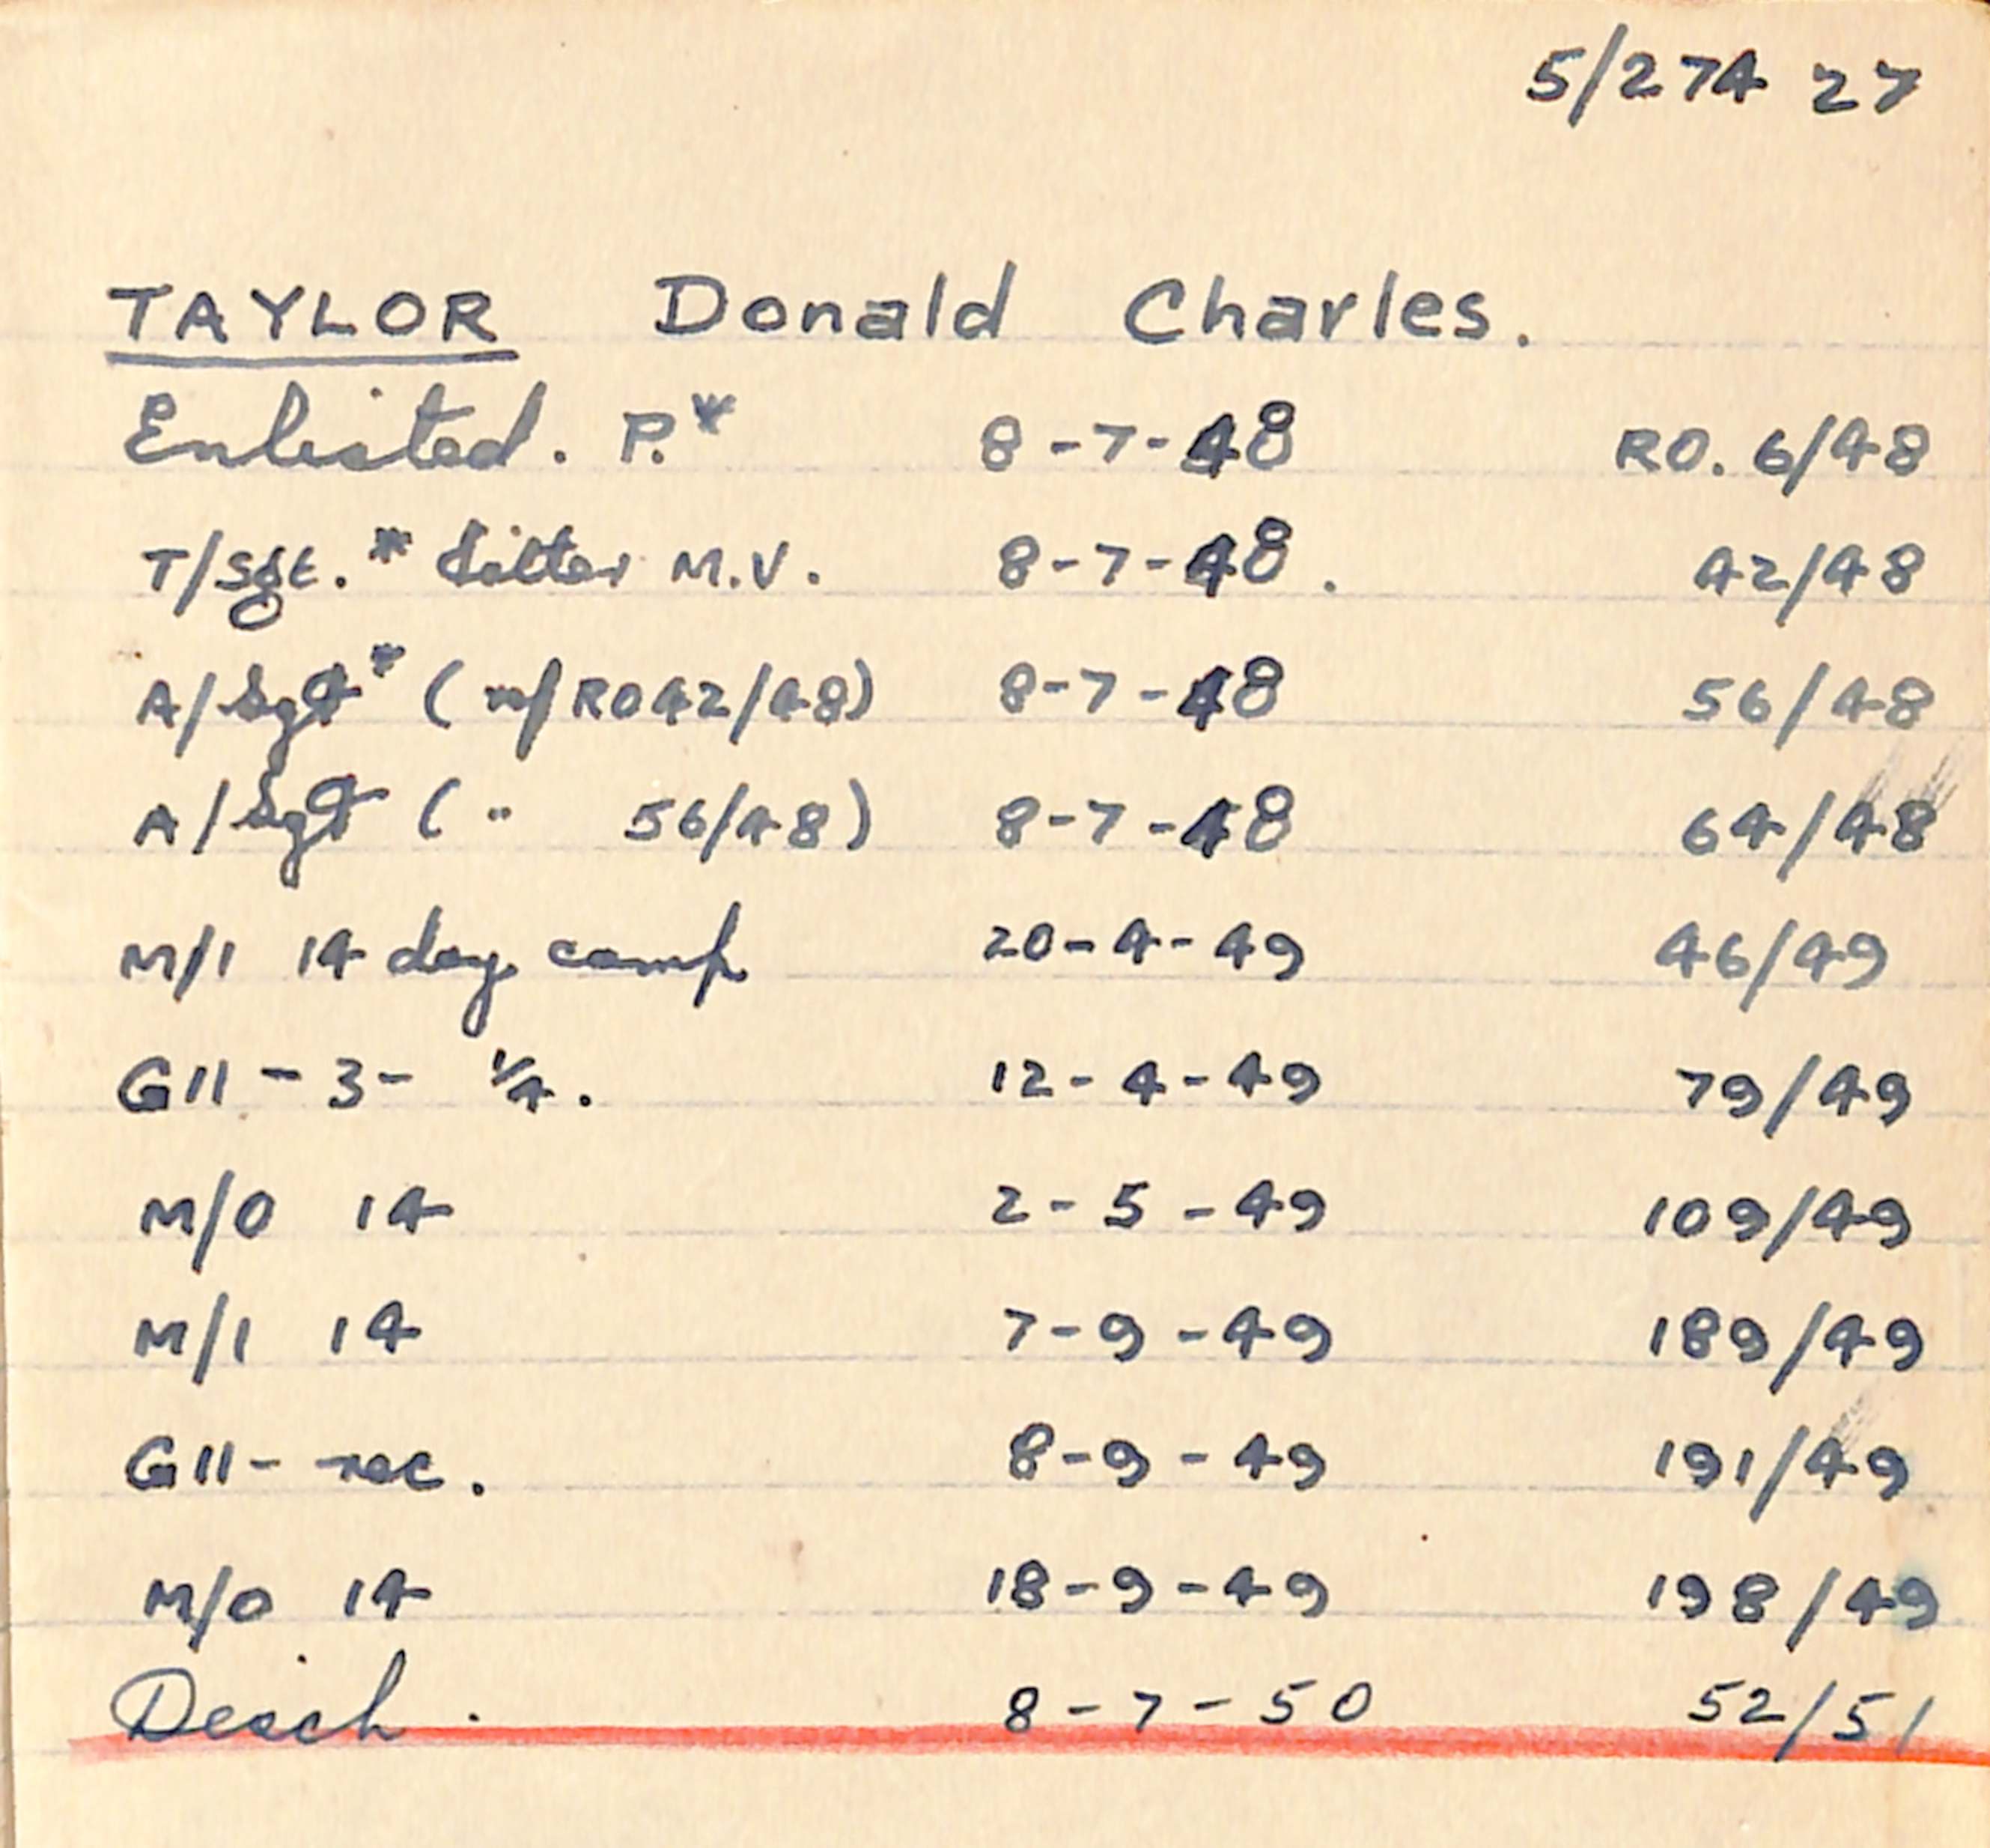 5/274 27
TAYLOR Donald Charles.
Enlisted. P.* 8-7-48 RO. 6/48
T/Sgt.* fitter M.V. 8-7-48. 42/48
A/Sgt* (n/RO42/48) 8-7-48 56/48
A/Sgt (" 56/48) 8-7-48 64/48
M/I 14 day camp 20-4-49 46/49
G11-3- 1/4. 12-4-49 79/49
M/O 14 2-5-49 109/49
M/I 14 7-9-49 189/49
G11- rec. 8-9-49 191/49
M/O 14 18-9-49 198/49
Disch. 8-7-50 52/51